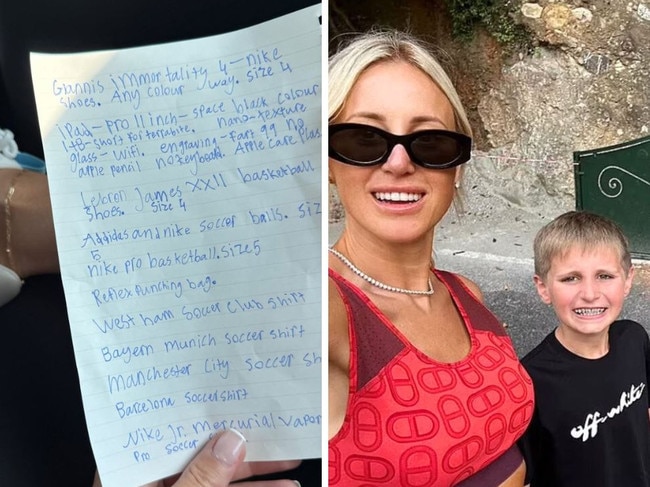 Giannis immortality 4 - nike
shoes. Any colour way. size 4
iPad - Pro 11 inch - space black colour
1tB - short for terrabite. nano-texture
glass - wifi. engraving - Fart 99 no
apple pencil no keyboard. Apple care Plas
Lebron James XXII basketball
shoes. size 4
Addidas and nike soccer balls. siz
5
nike pro basketball. size 5
Reflex punching bag.
West ham soccer club shift
Bayern munich soccer shift
Manchester City soccer sh
Barcelona soccer shift
Nike Jr. Mercurial Vapor
Pro soccer
off white